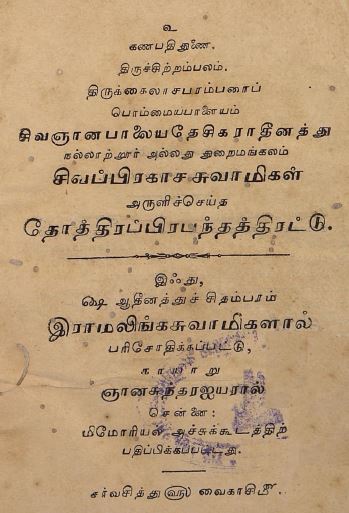 உ
கணபதிதுணை.
திருச்சிற்றம்பலம்.
திருக்கைலாசபரம்பரைப்
பொம்மையபாளையம்
சிவஞானபாலையதேசிகராதீனத்து
நல்லாற்றூர் அல்லது துறைமங்கலம்
சிவப்பிரகாசசுவாமிகள்
அருளிச்செய்த
தோத்திரப்பிரபந்தத்திரட்டு.
இஃது,
௸ ஆதீனத்துச் சிதம்பரம்
இராமலிங்கசுவாமிகளால்
பரிசோதிக்கப்பட்டு,
காயாறு
ஞானசுந்தரஐயரால்
சென்னை:
மிமோரியல் அச்சுக்கூடத்திற்
பதிப்பிக்கப்பட்டது.
சர்வசித்து௵ வைகாசி௴.